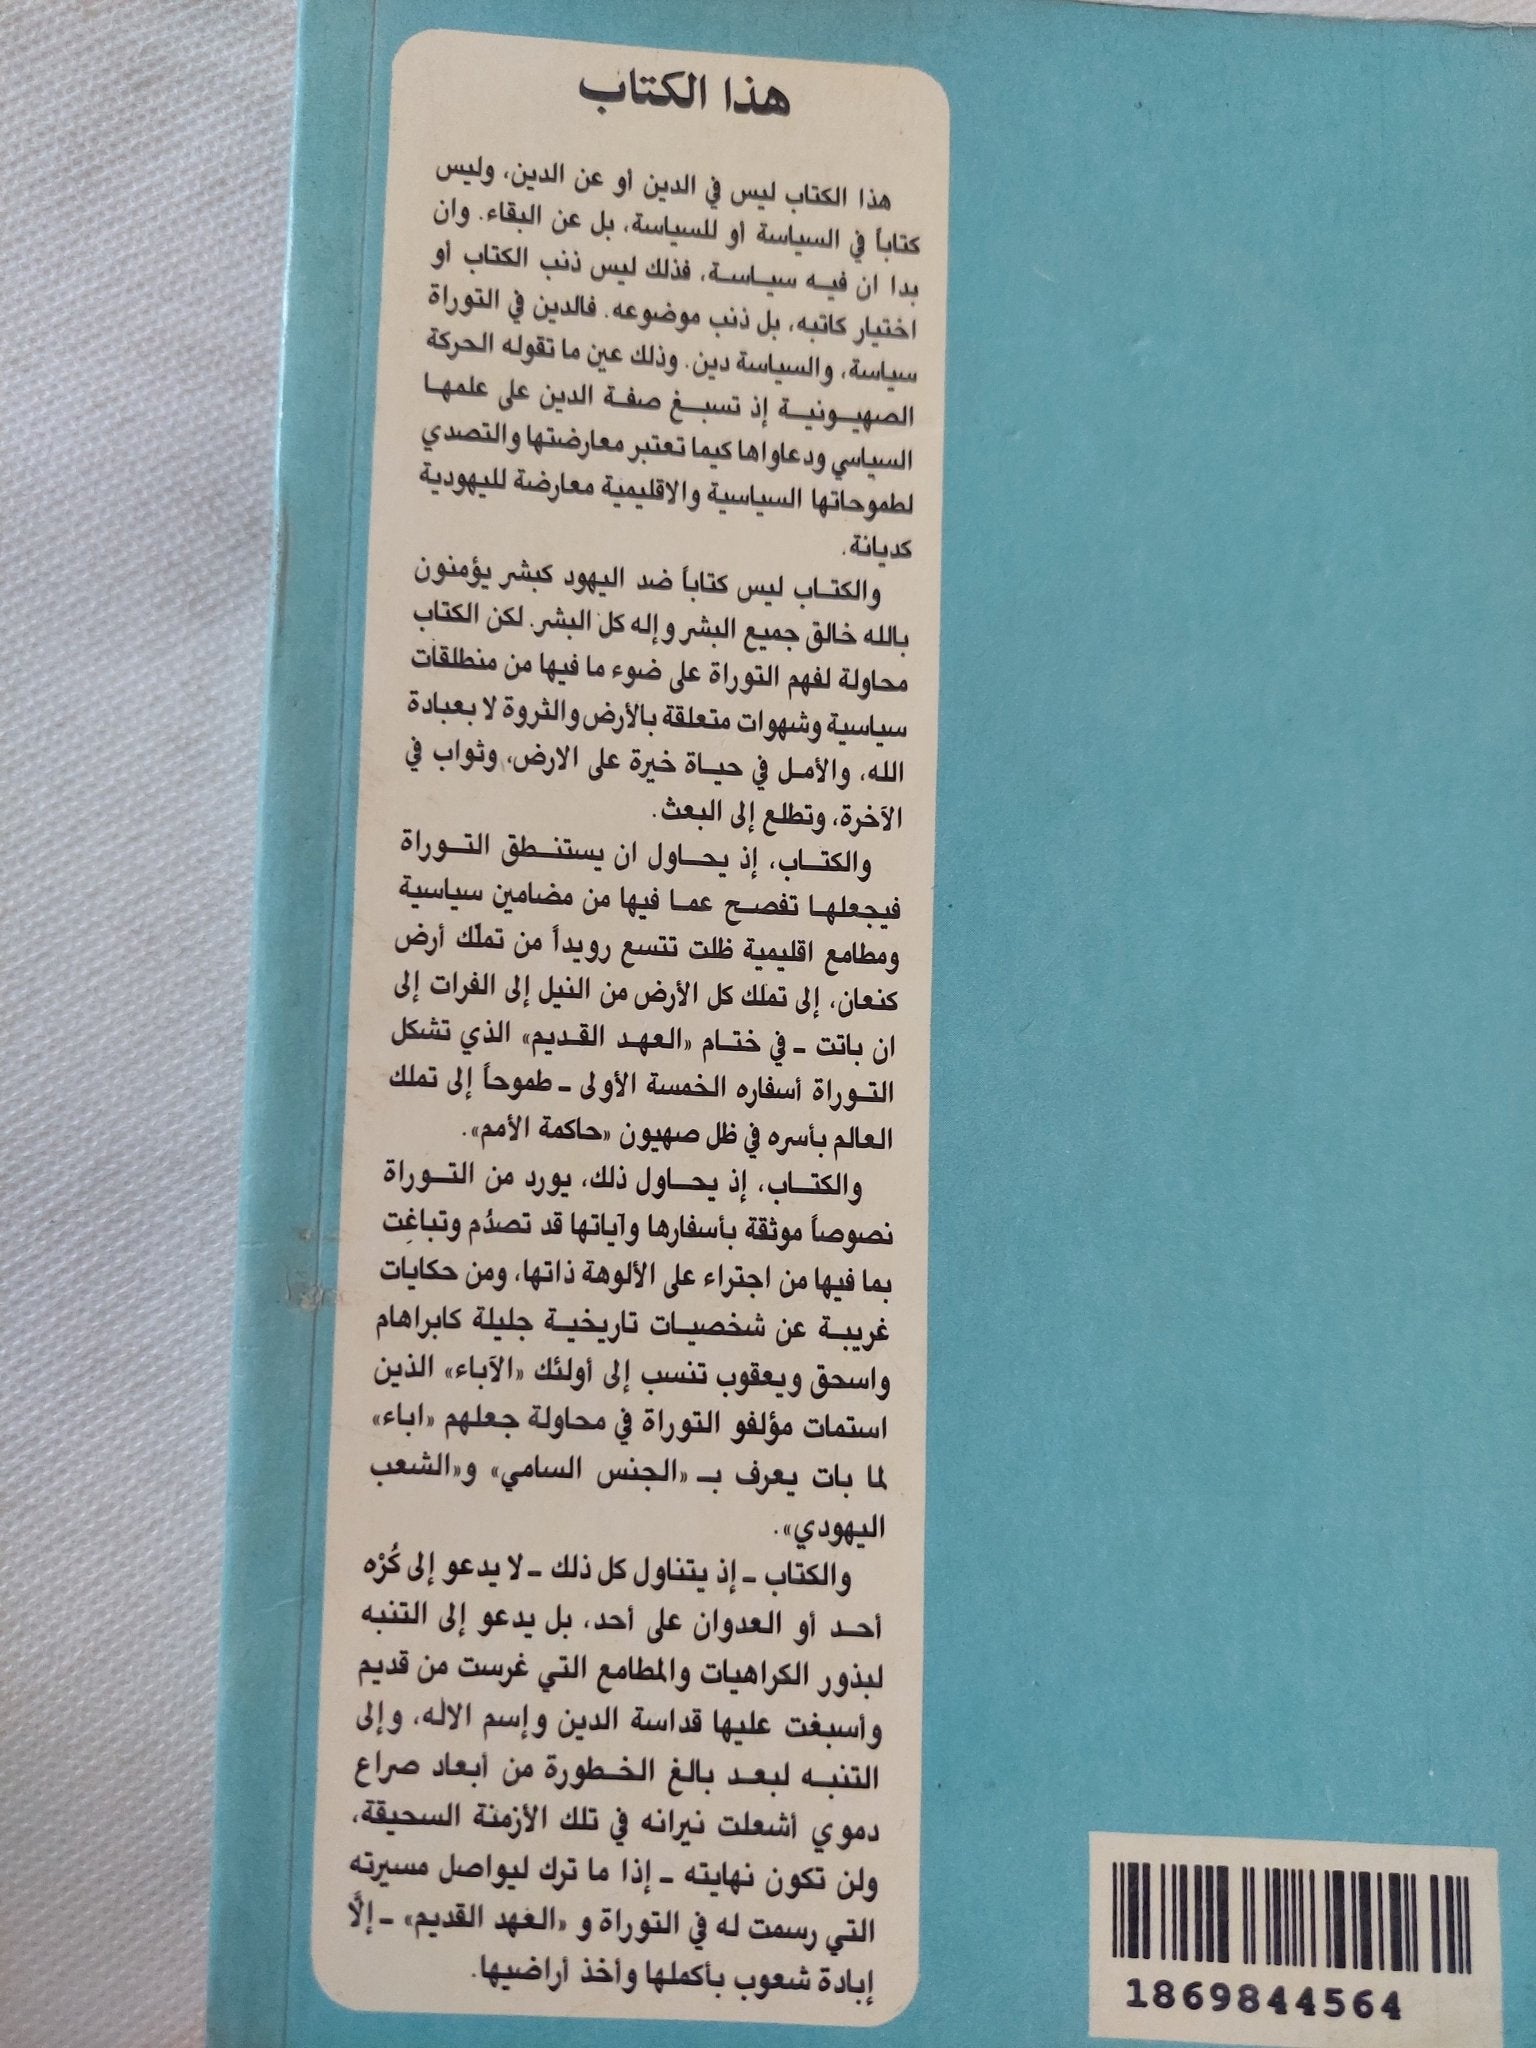 هذا الكتاب
هذا الكتاب ليس في الدين أو عن الدين، وليس
كتاباً في السياسة أو للسياسة، بل عن البقاء. وان
بدا ان فيه سياسة، فذلك ليس ذنب الكتاب أو
اختيار كاتبه، بل ذنب موضوعه. فالدين في التوراة
سياسة، والسياسة دين. وذلك عين ما تقوله الحركة
الصهيونية إذ تسبغ صفة الدين على علمها
السياسي ودعاواها كيما تعتبر معارضتها والتصدي
لطموحاتها السياسية والاقليمية معارضة لليهودية
كديانة.
والكتاب ليس كتاباً ضد اليهود كبشر يؤمنون
بالله خالق جميع البشر وإله كل البشر. لكن الكتاب
محاولة لفهم التوراة على ضوء ما فيها من منطلقات
سياسية وشهوات متعلقة بالأرض والثروة لا بعبادة
الله، والأمل في حياة خيرة على الارض، وثواب في
الآخرة، وتطلع إلى البعث.
والكتاب، إذ يحاول ان يستنطق التوراة
فيجعلها تفصح عما فيها من مضامين سياسية
ومطامع اقليمية ظلت تتسع رويداً من تملّك أرض
كنعان، إلى تملك كل الأرض من النيل إلى الفرات إلى
ان باتت ـ في ختام «العهد القديم» الذي تشكل
التوراة أسفاره الخمسة الأولى ـ طموحاً إلى تملك
العالم بأسره في ظل صهيون «حاكمة الأمم».
والكتاب، إذ يحاول ذلك، يورد من التوراة
نصوصاً موثقة بأسفارها وآياتها قد تصدُم وتباغِت
بما فيها من اجتراء على الألوهة ذاتها، ومن حكايات
غريبة عن شخصيات تاريخية جليلة كابراهام
واسحق ويعقوب تنسب إلى أولئك «الآباء» الذين
استمات مؤلفو التوراة في محاولة جعلهم «اباء»
لما بات يعرف بـ «الجنس السامي» و«الشعب
اليهودي».
والكتاب ـ إذ يتناول كل ذلك ـ لا يدعو إلى كُرْه
أحد أو العدوان على أحد، بل يدعو إلى التنبه
لبذور الكراهيات والمطامع التي غرست من قديم
وأسبغت عليها قداسة الدين وإسم الاله، وإلى
التنبه لبعد بالغ الخطورة من أبعاد صراع
دموي أشعلت نيرانه في تلك الأزمنة السحيقة،
ولن تكون نهايته ـ إذا ما ترك ليواصل مسيرته
التي رسمت له في التوراة و «العهد القديم» ـ إلَّا
إبادة شعوب بأكملها وأخذ أراضيها.
1869844564